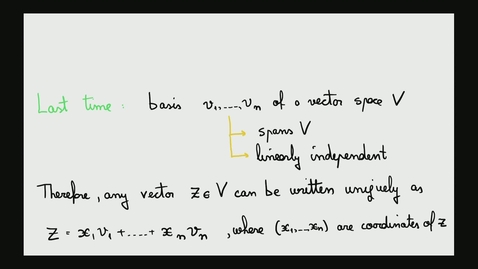 Last time : basis v₁,....,vₙ of a vector space V
spans V
linearly independent
Therefore, any vector z ∈ V can be written uniquely as
z = x₁v₁ + ..... + xₙvₙ , where (x₁,...,xₙ) are coordinates of z